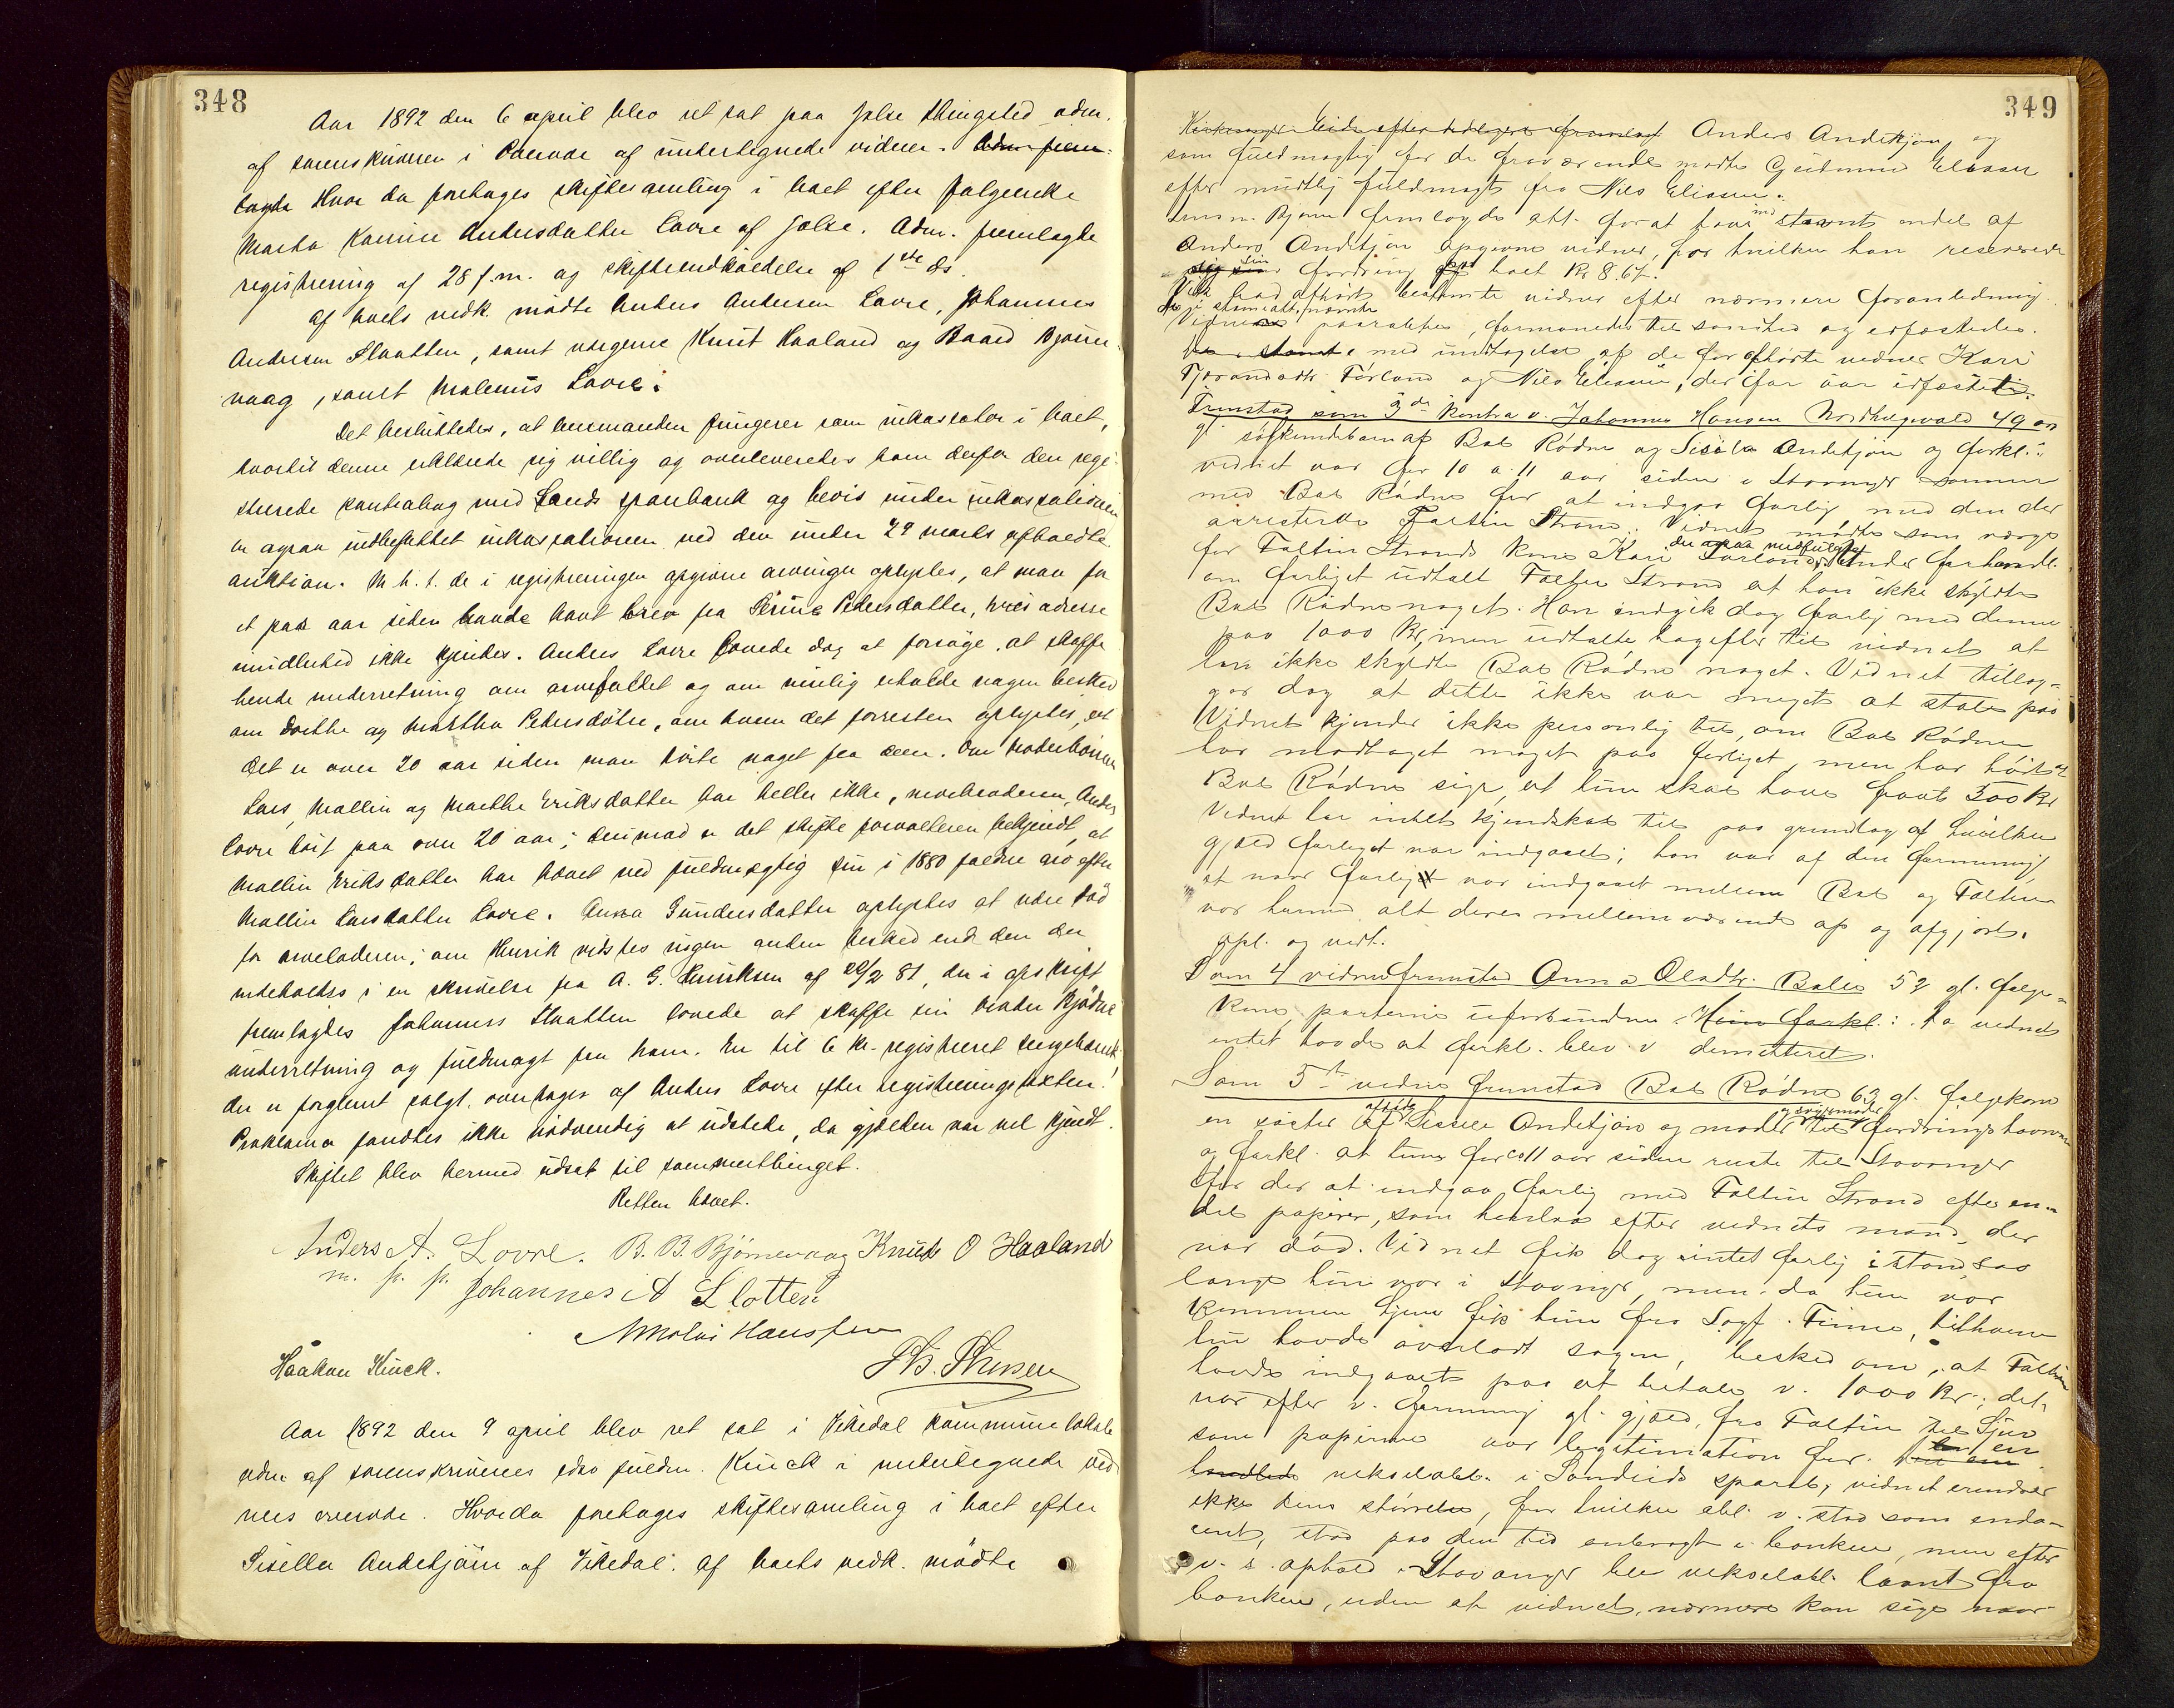 348
Aar 1892 den 6 april blev ret sat paa Jelse thingsted adm.
af sorenskriveren i overvær af undertegnede vidner. Adm. frem-
lagde Hvor da foretages skiftesamling i boet efter følgende
Marta Karine Andersdatter Lovre af Jelse. Adm. fremlagde
registrering af 28 f. m. og skifteindkaldelse af 1ste ds.
Af boets vedk. mødte Anders Andersen Lovre, Johannes
Andersen Slaatten, samt vergerne Knut Haaland og Baard Bjørne-
vaag, samt Malenus Lovre.
Det besluttedes, at lensmanden fungerer som inkassator i boet,
hvortil denne erklærede sig villig og overleveredes ham derfor den regi-
strerede kontrabog med Sands sparebank og bevis under inkassationen
er ogsaa indbefattet inkassationen ved den under 29 marts afholdte
auktion. M. h. t. de i registreringen opgivne arvinger oplystes, at man for
et par aar siden havde havt brev fra Serine Pedersdatter, hvis adresse
imidlertid ikke kjendes. Anders Lovre lovede dog at forsøge at skaffe
hende underretning om arvefaldet og om mulig erholde nogen besked
om Dorthe og Martha Pedersdøtre, om hvem det forresten oplystes, at
det er over 20 aar siden man hørte noget fra dem. Om
Lars, Mallin og Marthe Eriksdatter har heller ikke, Anders
Lovre hørt paa over 20 aar; derimod er det skifteforvalteren bekjendt, at
Mallin Eriksdatter har hævet ved fuldmægtig sin i 1880 faldne arv efter
Mallin Larsdatter Lovre. Anna Gundersdatter oplystes at være død
før arveladeren; om Henrik vidstes ingen anden besked end den der
indeholdes i en skrivelse fra A. G. Henriksen af 26/2 81, der i afskrift
fremlagdes Johannes Slaatten lovede at skaffe sin broder Bjødne
underretning og fuldmagt fra ham. En til 6 kr. registreret
der er forglemt solgt, overtages af Anders Lovre efter registreringstaxten.
Proklama fandtes ikke nødvendig at udstede, da gjælden var vel kjendt.
Skiftet blev hermed udsat til sommerthinget.
Retten hævet.
Anders A. Lovre. B. B. Bjørnevaag Knud O Haaland
m. p. p. Johannes A Slotten
Haakon Kinck.
Aar 1892 den 9 april blev ret sat i Vikedal kommunelokale
adm af sorenskriverens edsv fuldm. Kinck i undertegnede vid-
ners overvær. Hvorda foretages skiftesamling i boet efter
Sisella Andetjørn af Vikedal. Af boets vedk. mødte
349
Anders Andetjørn, og
som fuldmægtig for de fraværende mødte Gudmund Eliassen
efter mundtlig fuldmagt fra Nils Eliassen.
Lensm. Bjørn fremlagde att. for at have indstevnt endel af
Anders Andetjørn opgivne vidner, for hvilken han reserverede
sin fordring paa boet kr 8.67.
Vidnerne paaraabtes, formanedes til sandhed og edfæstedes.
med undtagelse af de før afhørte vidner Kari
Tjerandsdtr. Førland og Nils Eliassen, der før var edfæstet.
Fremstod som 3de kontra v. Johannes Hansen Nordhugvold 49 aar
gl. søskendebarn af Bol Rødne og Sisela Andetjørn og forkl.:
vidnet var for 10 a 11 aar siden i Stavanger sammen
med Bol Rødne for at indgaa forlig med den der
arresterede Faltin Strand. Vidnet mødte som verge
for Faltin Strands kone Kari Førland, der ogsaa medfulgte. Under forhandl.
om forliget udtalte Faltin Strand at han ikke skyldte
Bol Rødne noget. Han indgik dog forlig med denne
paa 1000 kr, men udtalte bagefter til vidnet at
han ikke skyldte Bol Rødne noget. Vidnet tillæg-
ger dog at dette ikke var meget at stole paa
Vidnet kjender ikke personlig til, om Bol Rødne
har modtaget noget paa forliget, men har hørt at
Bol Rødne sige, at hun skal have faaet 300 kr
Vidnet har intet kjendskab til paa grundlag af hvilken
gjæld forliget var indgaaet; han var af den formening
at naar forliget var indgaaet mellem Bol og Faltin
var hermed alt deres mellemværende op og afgjort.
Opl. og vedt.
Som 4 vidne fremstod Anna Olsdtr. Bale 52 gl. folge-
kone, parterne uforbunden. Hun forkl.: Da vidnet
intet havde at forkl. blev v dimitteret.
Som 5te vidne fremstod Bol Rødne 63 gl. folgekone
en søster af afdøde Sissele Andetjørn og moder og svigermoder til fordringshaverne
og forkl. at hun for ca 11 aar siden reiste til Stavanger
for der at indgaa forlig med Faltin Strand efter en-
del papirer, som henlaa efter vidnets mand, der
var død. Vidnet fik dog intet forlig istand saa
længe hun var i Stavanger, men da hun var
kommen hjem fik hun fra Sagf. Finne, tilhvem
hun havde overladt sagen, besked om, at Faltin
havde indgaaet paa at betale v. 1000 kr.; det
var efter v. formening gl. gjæld, fra Faltin
som papirerne var legitimation for. en
vekselobl. i Sandeids spareb, vidnet erindrer
ikke dens størrelse, for hvilken obl. v. stod som endo-
sent, stod paa den tid ombragt i banken, men efter
v. s. ophold i Stavanger blev vekselobl. laant fra
banken, uden at vidnet nærmere kan sige naar